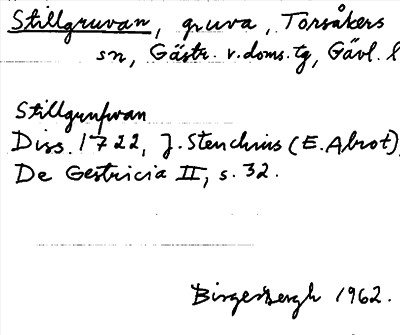 Stillgruvan, gruva, Torsåkers
sn, Gästr. v. doms. tg, Gävl. l
Stillgrufwan
Diss. 1722, J. Stenchius (E. Alrot),
De Gestricia II, s. 32.
Birger Bergh 1962.